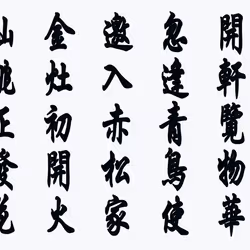 開軒覽物華
忽逢青鳥使
邀入赤松家
金灶初開火
正發